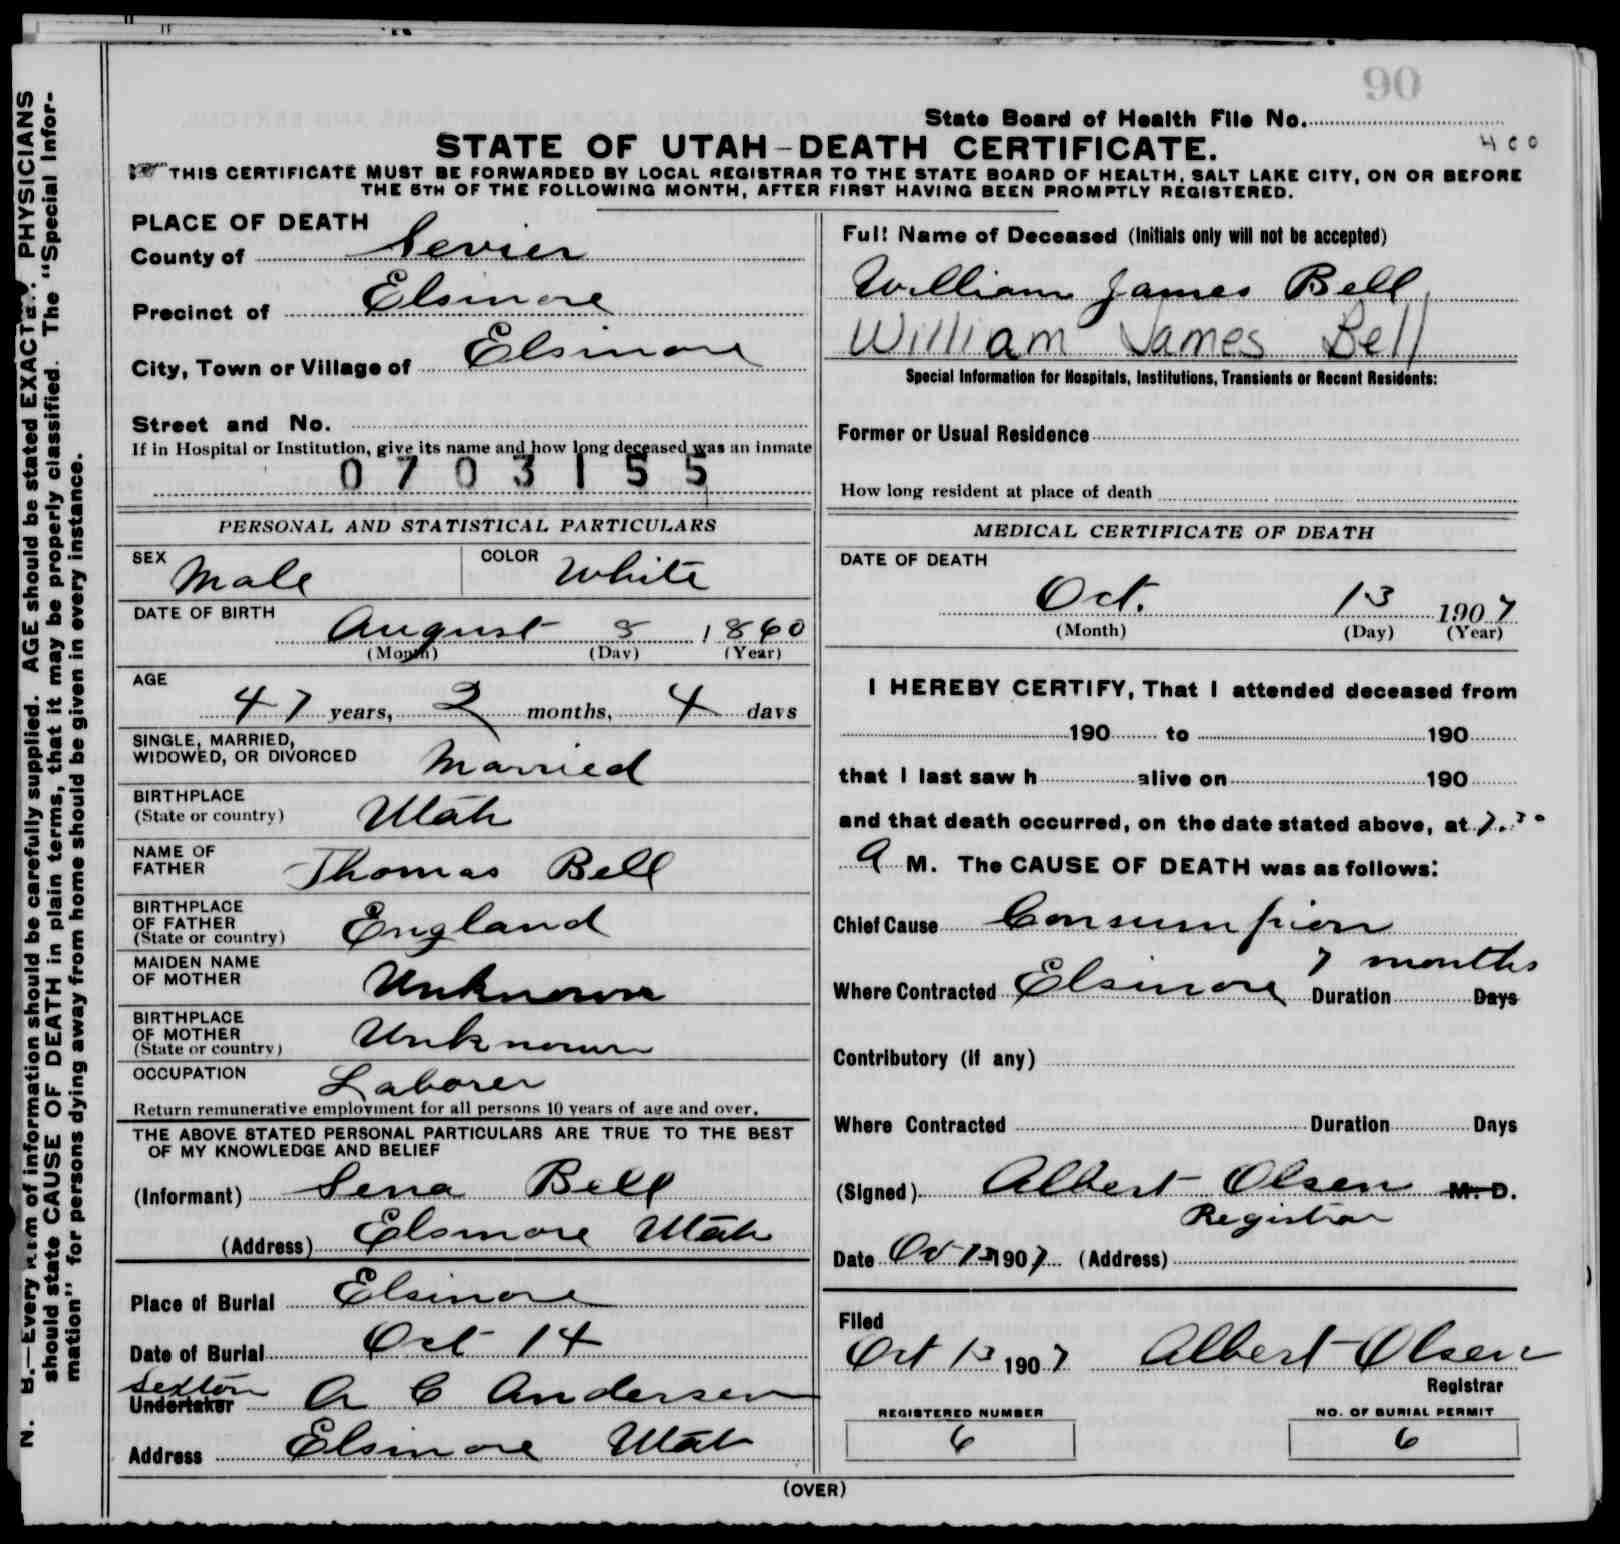 90
State Board of Health File No.
400
STATE OF UTAH—DEATH CERTIFICATE.
THIS CERTIFICATE MUST BE FORWARDED BY LOCAL REGISTRAR TO THE STATE BOARD OF HEALTH, SALT LAKE CITY, ON OR BEFORE
THE 5TH OF THE FOLLOWING MONTH, AFTER FIRST HAVING BEEN PROMPTLY REGISTERED.
N. B.—Every item of information should be carefully supplied. AGE should be stated EXACTLY. PHYSICIANS
should state CAUSE OF DEATH in plain terms, that it may be properly classified. The "Special Infor-
mation" for persons dying away from home should be given in every instance.
PLACE OF DEATH
County of Sevier
Precinct of Elsinore
City, Town or Village of Elsinore
Street and No.
If in Hospital or Institution, give its name and how long deceased was an inmate
0703155
PERSONAL AND STATISTICAL PARTICULARS
SEX Male COLOR White
DATE OF BIRTH
August 8 1860
(Month) (Day) (Year)
AGE
47 years, 2 months, 4 days
SINGLE, MARRIED,
WIDOWED, OR DIVORCED Married
BIRTHPLACE
(State or country) Utah
NAME OF
FATHER Thomas Bell
BIRTHPLACE
OF FATHER
(State or country) England
MAIDEN NAME
OF MOTHER Unknown
BIRTHPLACE
OF MOTHER
(State or country) Unknown
OCCUPATION Laborer
Return remunerative employment for all persons 10 years of age and over.
THE ABOVE STATED PERSONAL PARTICULARS ARE TRUE TO THE BEST
OF MY KNOWLEDGE AND BELIEF
(Informant) Sena Bell
(Address) Elsinore Utah
Place of Burial Elsinore
Date of Burial Oct 14
Sexton
Undertaker A C Andersen
Address Elsinore Utah
Full Name of Deceased (Initials only will not be accepted)
William James Bell
William James Bell
Special Information for Hospitals, Institutions, Transients or Recent Residents:
Former or Usual Residence
How long resident at place of death
MEDICAL CERTIFICATE OF DEATH
DATE OF DEATH
Oct. 13 1907
(Month) (Day) (Year)
I HEREBY CERTIFY, That I attended deceased from
190 to 190
that I last saw h alive on 190
and that death occurred, on the date stated above, at 7.30
A M. The CAUSE OF DEATH was as follows:
Chief Cause Consumpion
7 months
Where Contracted Elsinore Duration Days
Contributory (if any)
Where Contracted Duration Days
(Signed) Albert Olsen M. D.
Registrar
Date Oct 13 1907 (Address)
Filed
Oct 13 1907 Albert Olsen
Registrar
REGISTERED NUMBER
6
NO. OF BURIAL PERMIT
6
(OVER)